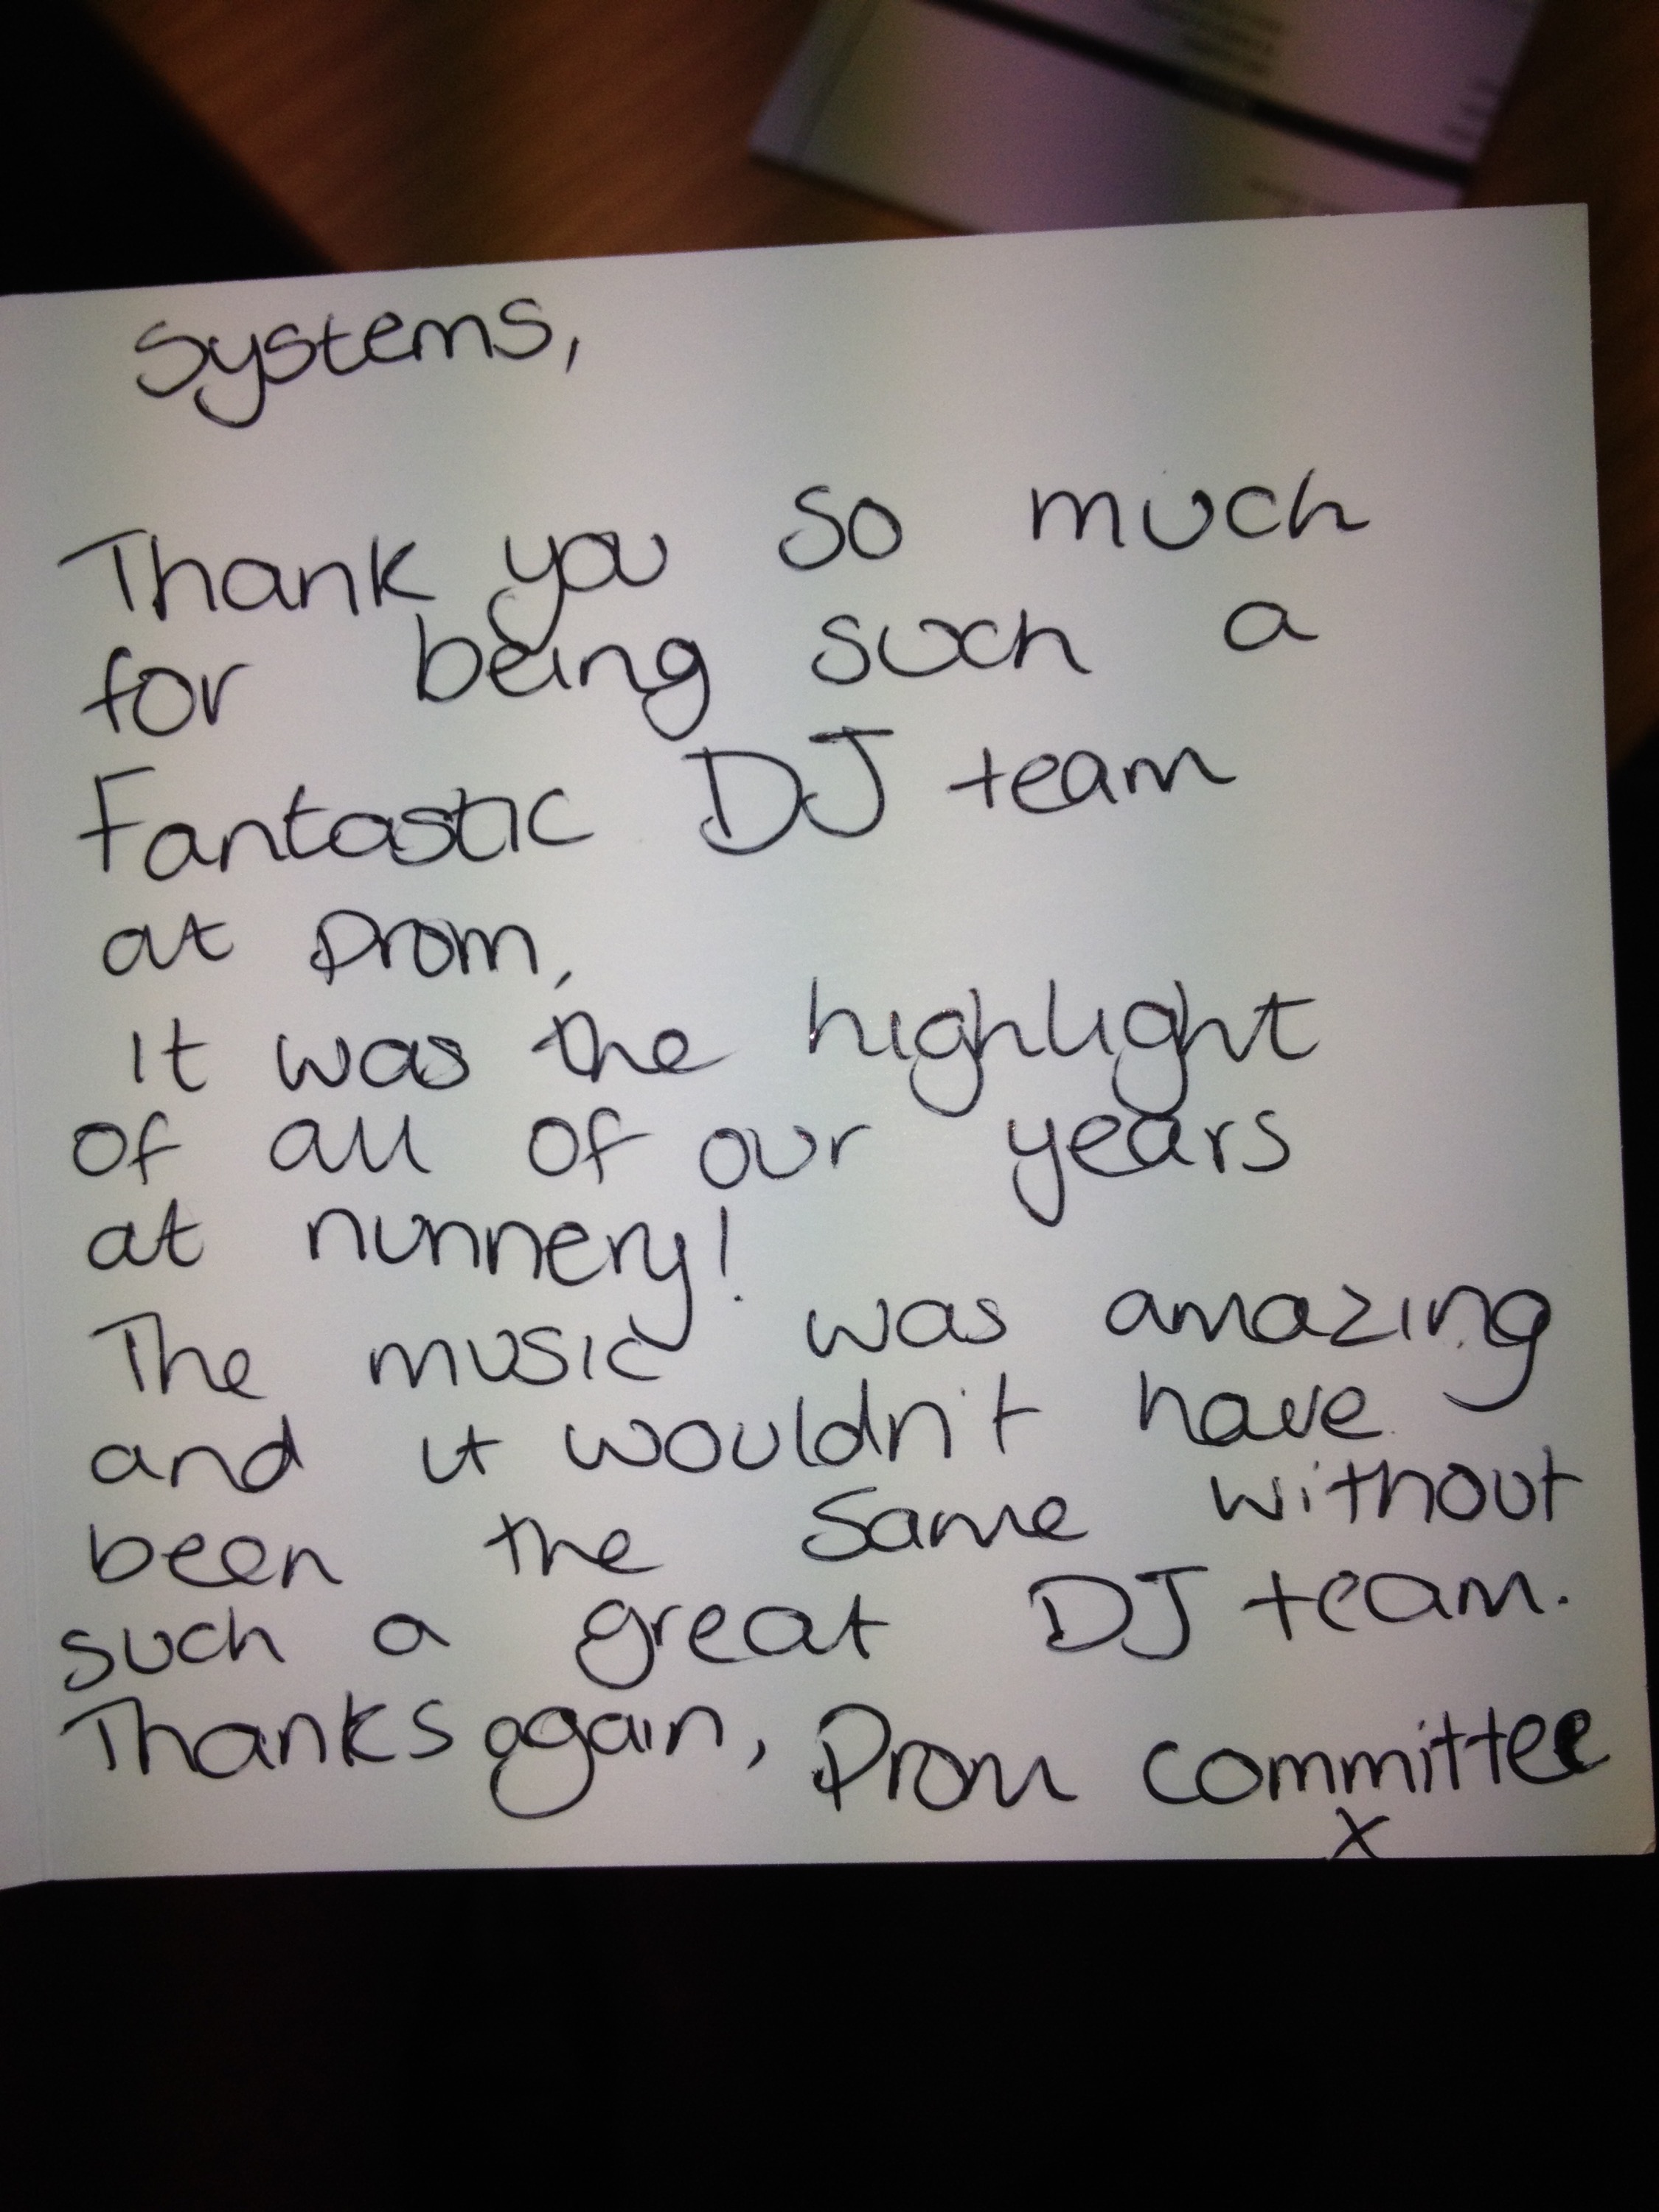 Systems,
Thank you so much
for being such a
Fantastic DJ team
at prom,
It was the highlight
of all of our years
at nunnery!
The music was amazing
and it wouldn't have
been the same without
such a great DJ team.
Thanks again, Prom committee
x